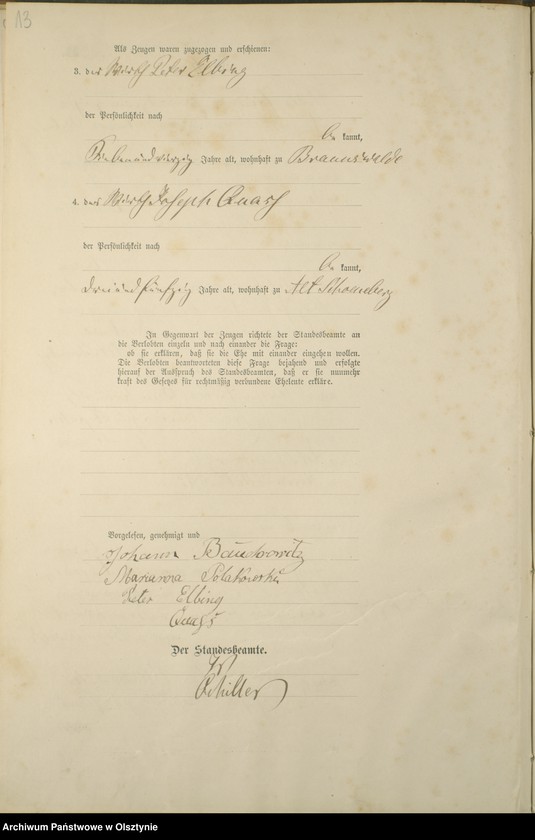 13
Als Zeugen waren zugezogen und erschienen:
3. der Wirth Peter Elbing
der Persönlichkeit nach
be kannt,
Siebenundvierzig Jahre alt, wohnhaft zu Braunswalde
4. der Wirth Joseph
der Persönlichkeit nach
be kannt,
dreiundfünfzig Jahre alt, wohnhaft zu Alt Schoeneberg
In Gegenwart der Zeugen richtete der Standesbeamte an
die Verlobten einzeln und nach einander die Frage:
ob sie erklären, daß sie die Ehe mit einander eingehen wollen.
Die Verlobten beantworteten diese Frage bejahend und erfolgte
hierauf der Ausspruch des Standesbeamten, daß er sie nunmehr
kraft des Gesetzes für rechtmäßig verbundene Eheleute erkläre.
Vorgelesen, genehmigt und
Johann
Marianna
Peter Elbing
Der Standesbeamte.
Schiller
Archiwum Państwowe w Olsztynie